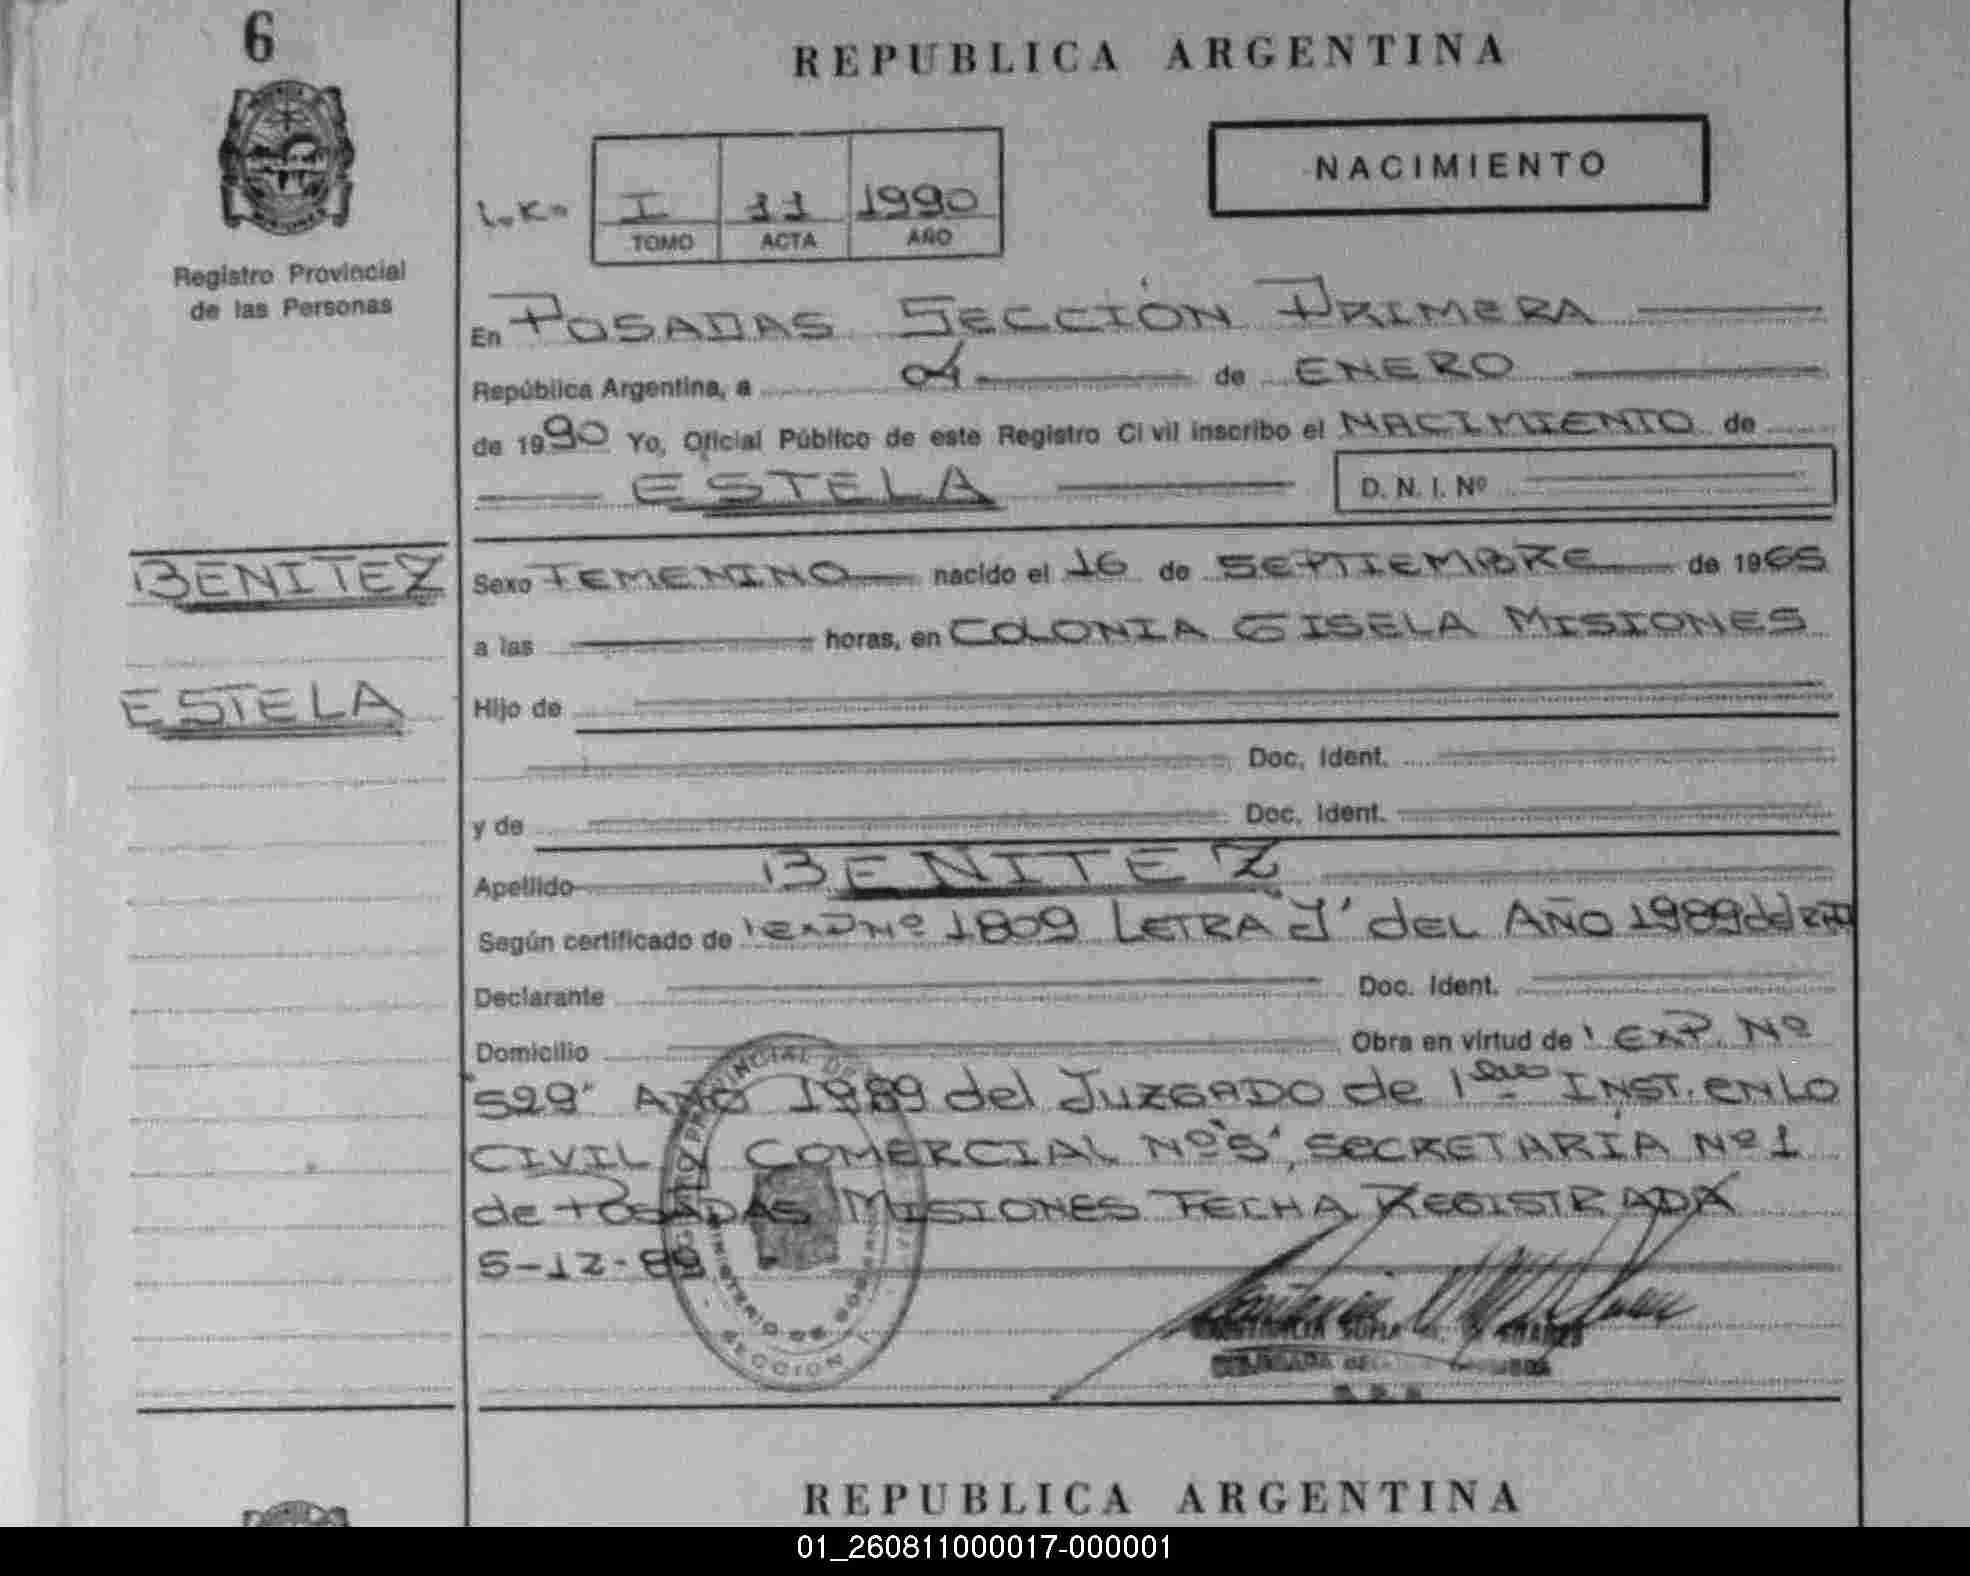 6
REPUBLICA ARGENTINA
NACIMIENTO
I 11 1990
TOMO ACTA AÑO
Registro Provincial
de las Personas
En POSADAS SECCIÓN PRIMERA
República Argentina, a de ENERO
de 1990 Yo, Oficial Público de este Registro Civil inscribo el NACIMIENTO de
ESTELA D. N. I. Nº
BENITEZ
ESTELA
Sexo FEMENINO nacido el 16 de SEPTIEMBRE de 1965
a las horas, en COLONIA GISELA MISIONES
Hijo de
Doc. Ident.
y de Doc. Ident.
Apellido BENITEZ
Según certificado de EXP Nº 1809 LETRA "J" del AÑO 1989 del
Declarante Doc. Ident.
Domicilio Obra en virtud de EXP. Nº
"529" AÑO 1989 del JUZGADO de 1era INST. EN LO
CIVIL Y COMERCIAL Nº "5", SECRETARIA Nº 1
de POSADAS MISIONES FECHA REGISTRADA
5-12-89
SECCION
REPUBLICA ARGENTINA
01_260811000017-000001